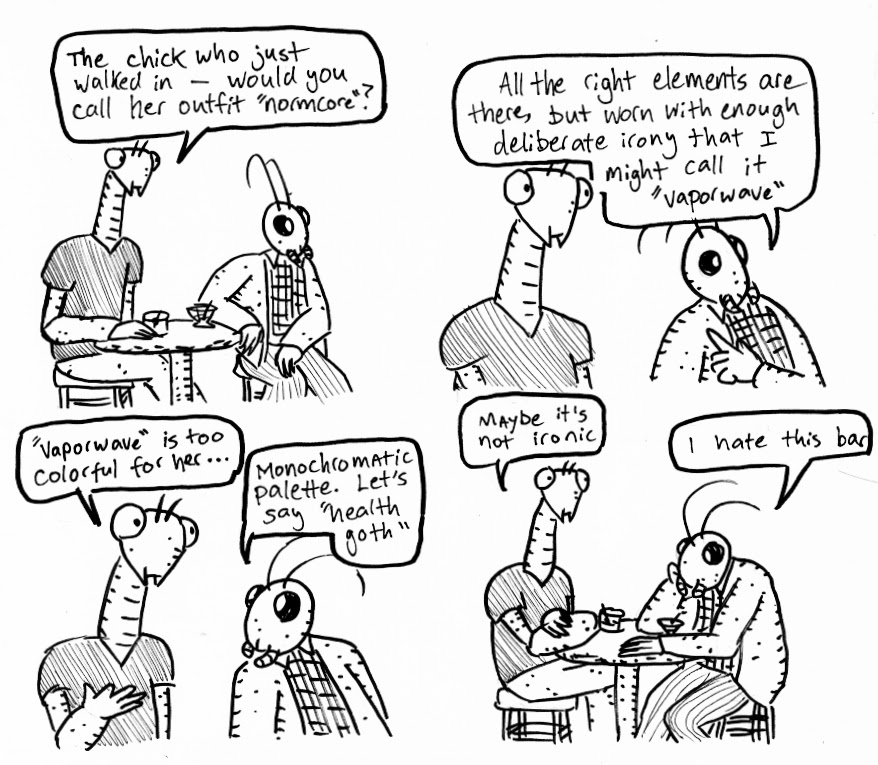 The chick who just
walked in — would you
call her outfit "normcore"?
All the right elements are
there, but worn with enough
deliberate irony that I
might call it
"vaporwave"
"Vaporwave" is too
colorful for her...
Monochromatic
palette. Let's
say "health
goth"
Maybe it's
not ironic
I hate this bar